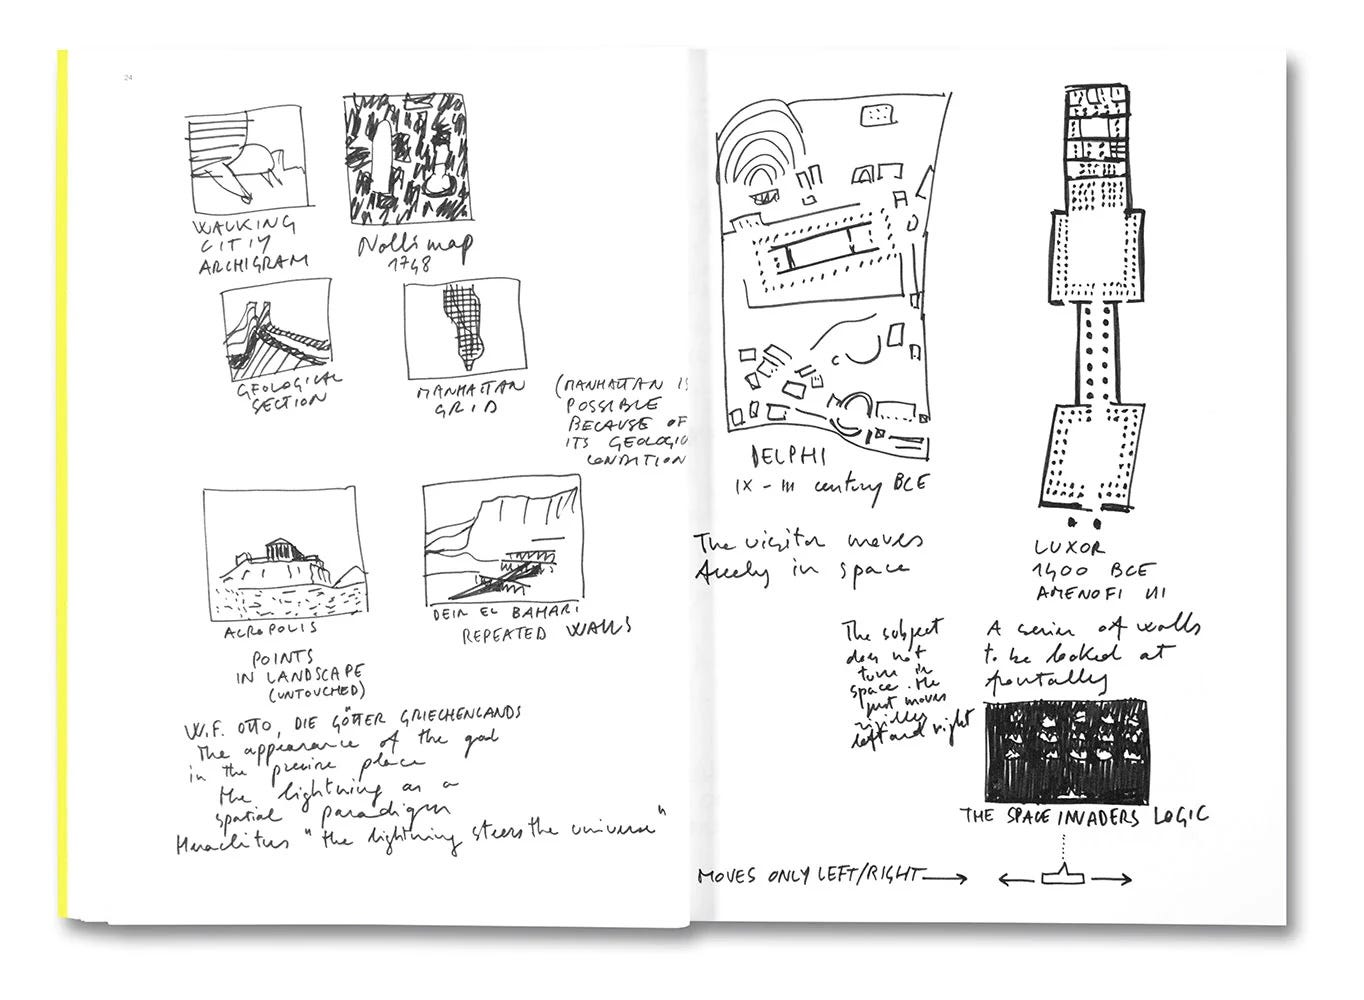 24
WALKING
CITIY
ARCHIGRAM
Nolli map
1748
GEOLOGICAL
SECTION
MANHATTAN
GRID
(MANHATTAN IS
POSSIBLE
BECAUSE OF
ITS GEOLOGIC
CONDITION
ACROPOLIS
POINTS
IN LANDSCAPE
(UNTOUCHED)
DEIR EL BAHARI
REPEATED WALLS
W.F. OTTO, DIE GÖTTER GRIECHENLANDS
The appearance of the god
in the precise place
the lightning as a
spatial paradigm
Heraclitus "the lightning steers the universe"
DELPHI
IX - III century BCE
The visitor moves
freely in space
LUXOR
1400 BCE
AMENOFI III
A series of walls
to be looked at
frontally
The subject
does not
turn in
space. He
just moves
left and right
THE SPACE INVADERS LOGIC
MOVES ONLY LEFT/RIGHT